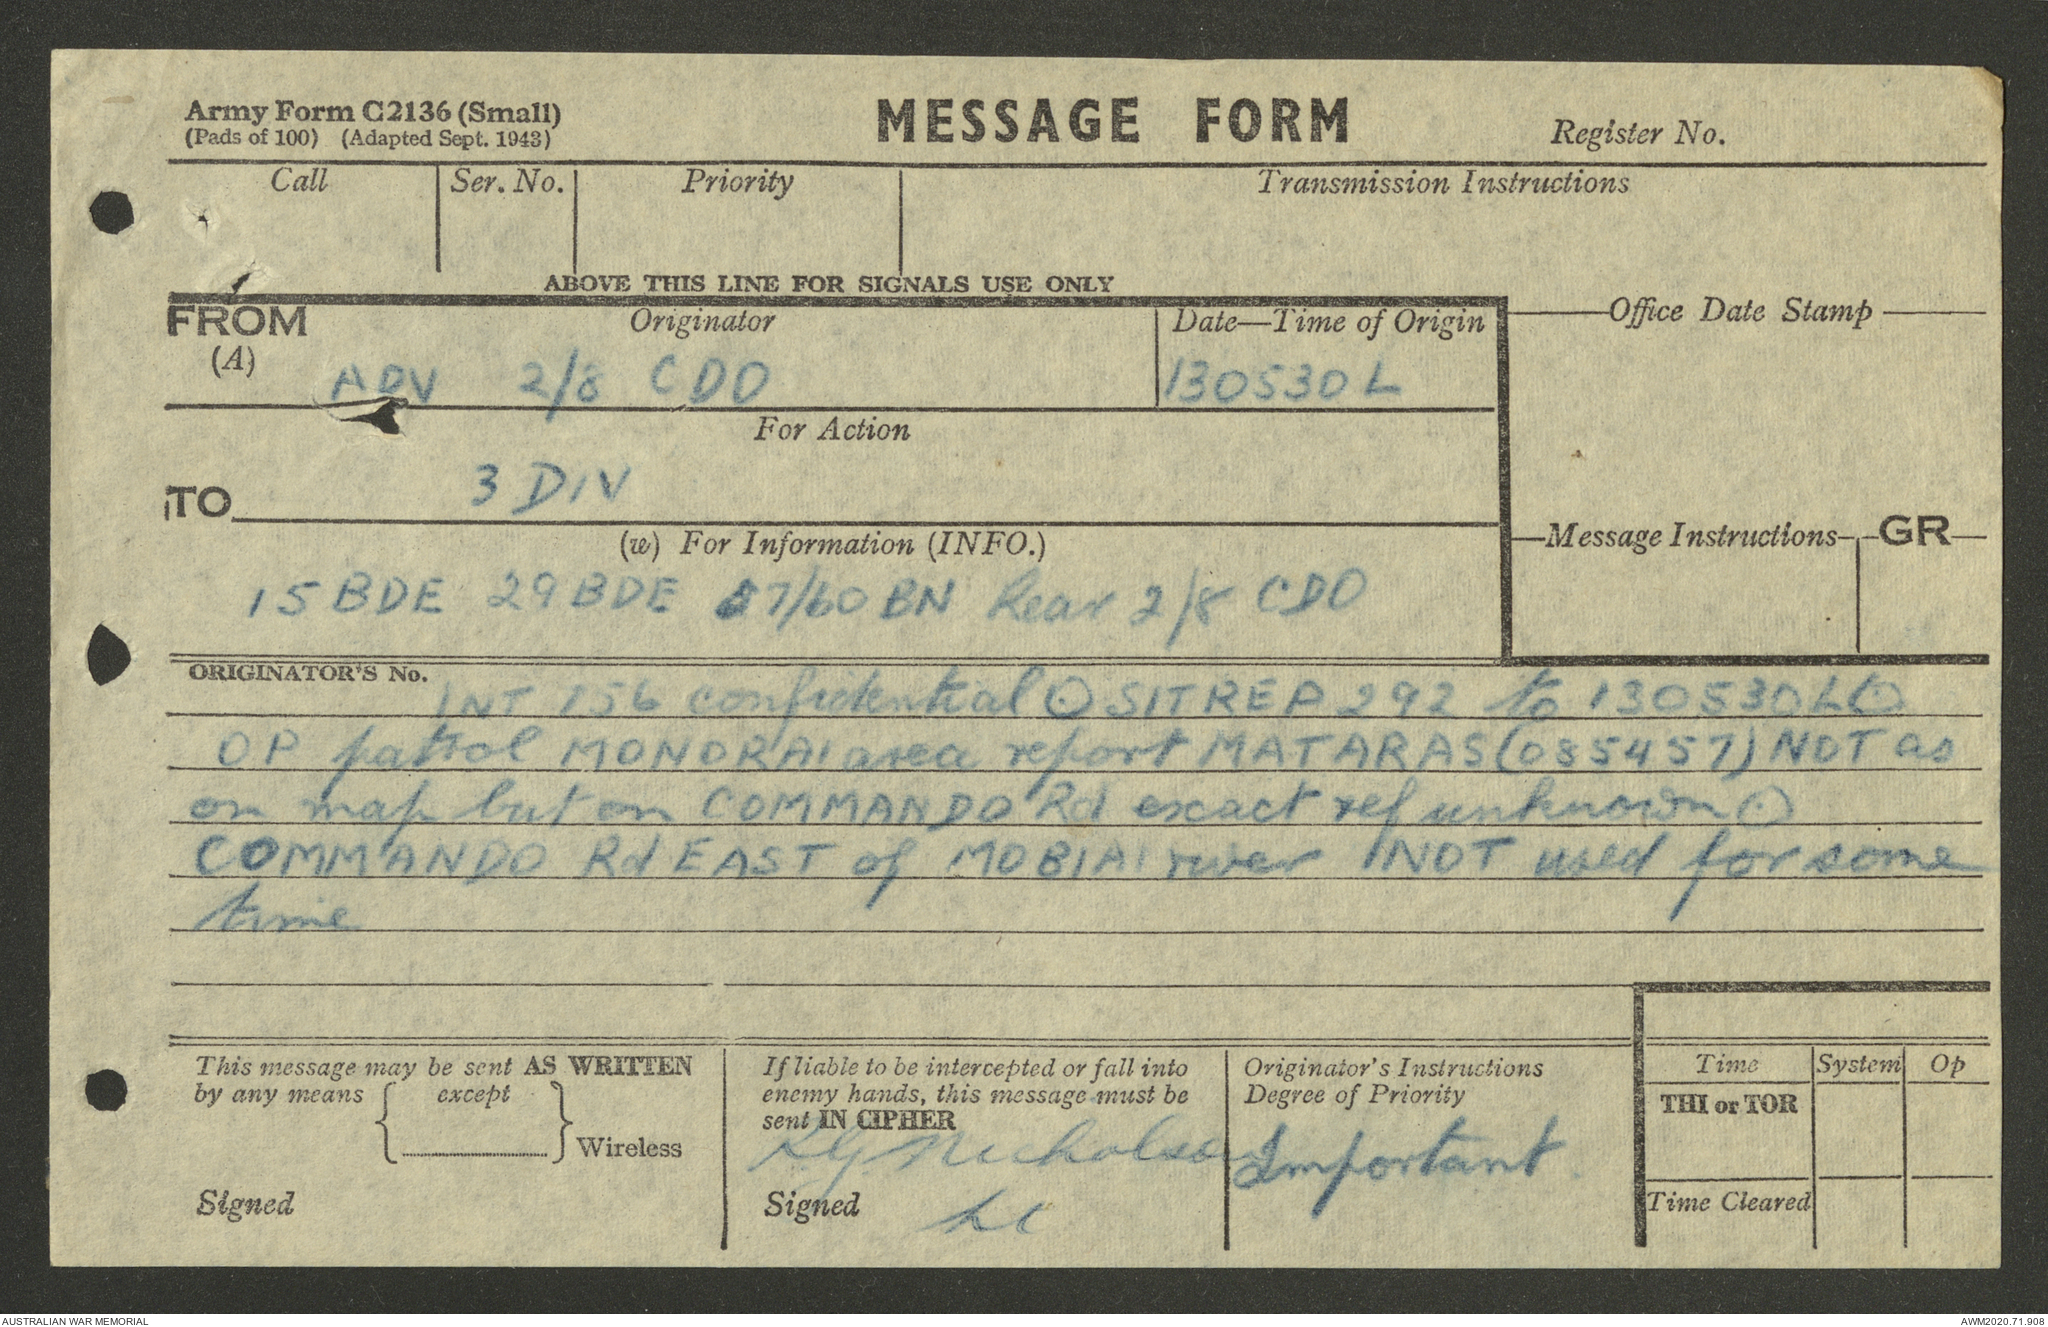 Army Form C2136 (Small)
(Pads of 100) (Adapted Sept. 1943)
MESSAGE FORM
Register No.
Call Ser. No. Priority Transmission Instructions
ABOVE THIS LINE FOR SIGNALS USE ONLY
FROM
(A)
Originator
Date—Time of Origin
Office Date Stamp
ADV 2/8 CDO
130530L
For Action
TO
3 DIV
(w) For Information (INFO.)
Message Instructions GR
15 BDE 29 BDE 57/60 BN Rear 2/8 CDO
ORIGINATOR'S No.
INT 156 confidential ⊙ SITREP 292 to 130530L ⊙
OP patrol MONORAI area report MATARAS (085457) NOT as
on map but on COMMANDO Rd exact ref unknown ⊙
COMMANDO Rd EAST of MOBIAI river NOT used for some
time
This message may be sent AS WRITTEN
by any means except
Wireless
Signed
If liable to be intercepted or fall into
enemy hands, this message must be
sent IN CIPHER
Nicholson
Signed
Lt
Originator's Instructions
Degree of Priority
Important
Time System Op
THI or TOR
Time Cleared
AUSTRALIAN WAR MEMORIAL
AWM2020.71.908